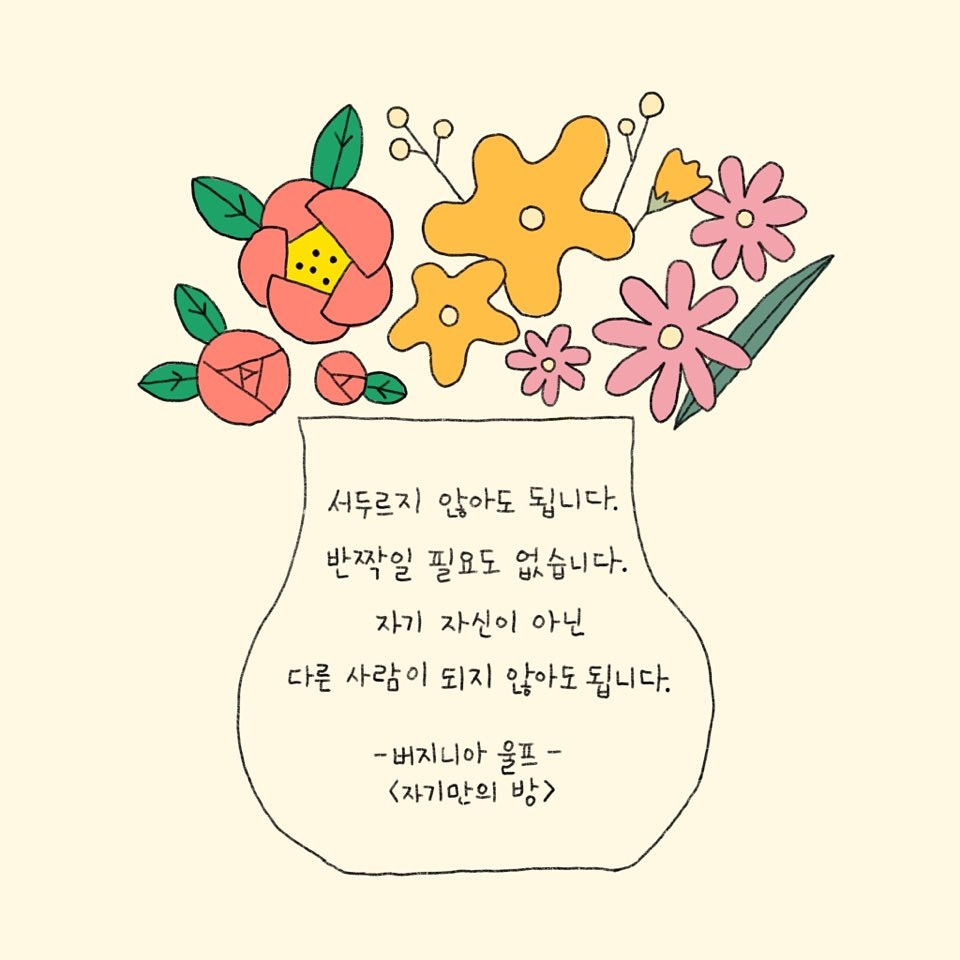 서두르지 않아도 됩니다.
반짝일 필요도 없습니다.
자기 자신이 아닌
다른 사람이 되지 않아도 됩니다.
-버지니아 울프-
<자기만의 방>